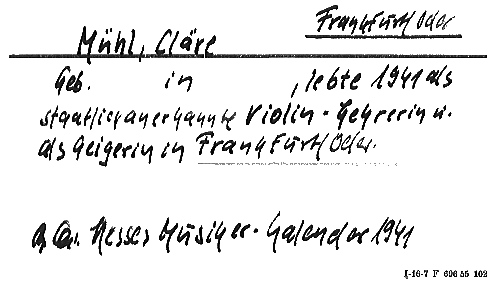 Frankfurt/Oder
Mühl, Cläre
Geb. in , lebte 1941 als
staatlich anerkannte Violin-Lehrerin u.
als Geigerin in Frankfurt/Oder.
Hesses Musiker-Kalender 1941
I-16-7 F 696 55 102